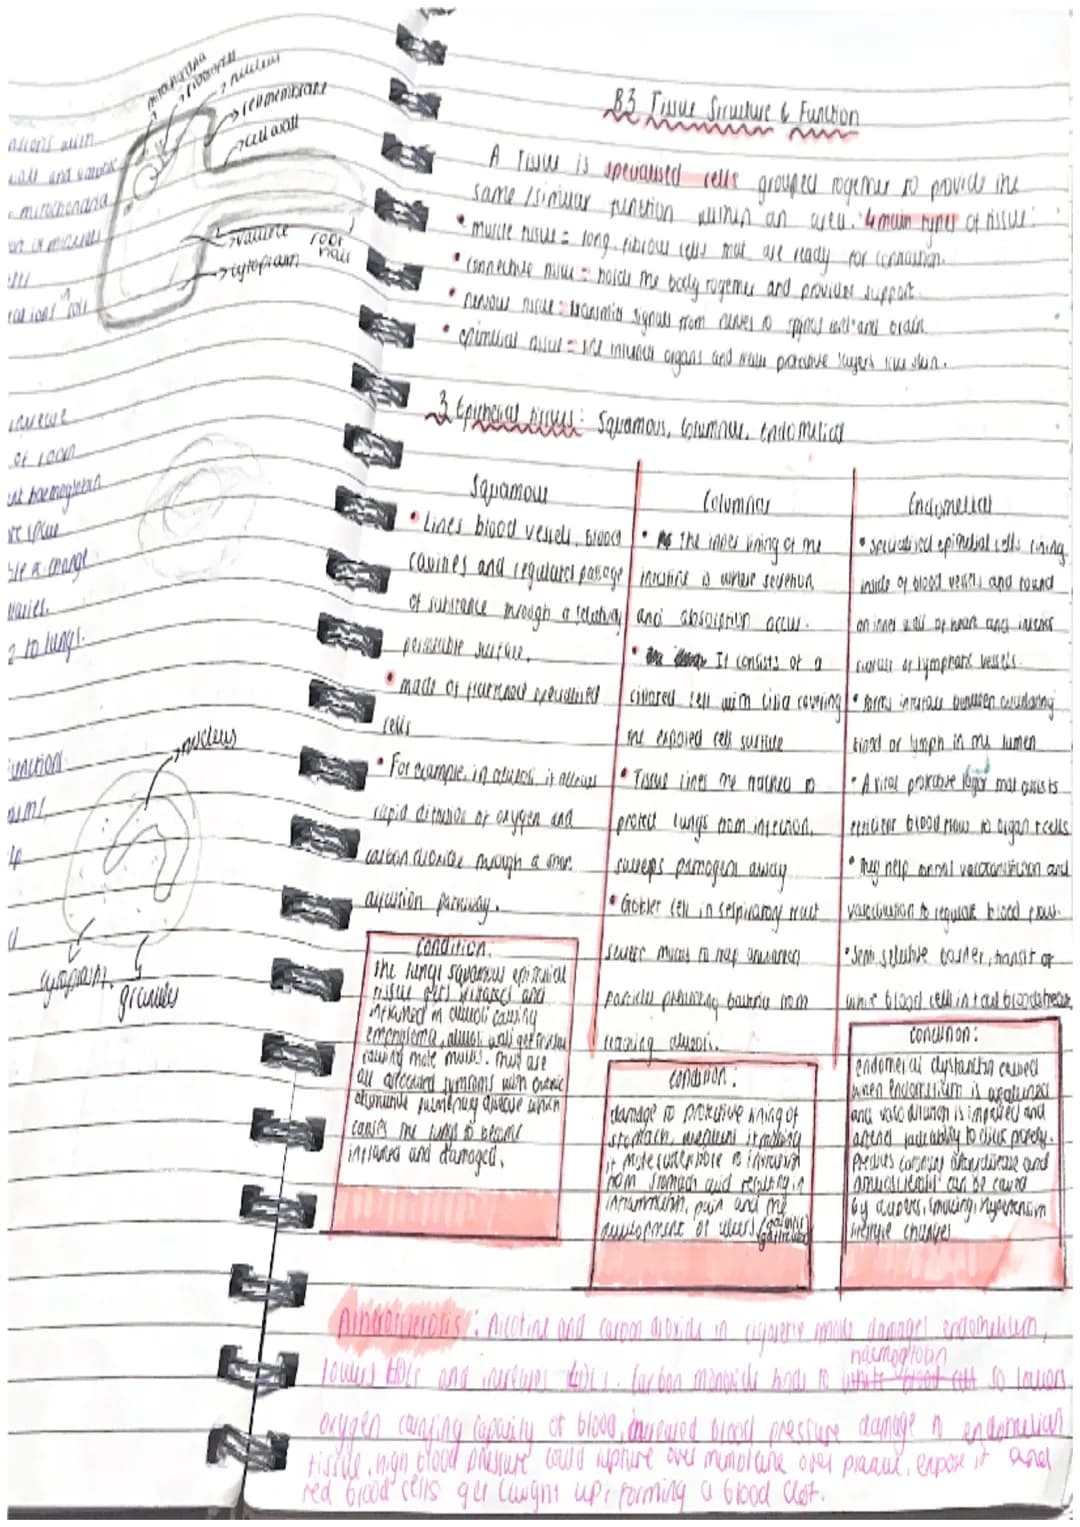 mitochondria
ribosomes
nucleus
cell membrane
cell wall
vacuole
root hair
cytoplasm
wall and vacuole
mitochondria
of room
haemoglobin
to lungs.
nucleus
cytoplasm
granules
B3 Tissue Structure & Function
A Tissue is specialised cells grouped together to provide the
same / similar function within an area. 4 main types of tissue:
• muscle tissue = long fibrous cells that are ready for contraction.
• connective tissue = holds the body together and provides support.
• nervous tissue = transmits signals from nerves to spinal cord and brain.
• epithelial tissue = line internal organs and make protective layers like skin.
3 Epithelial tissues: Squamous, Columnar, Endothelial
Squamous
• Lines blood vessels, blood
cavities and regulates passage
of substance through a selectively
permeable surface.
• made of flattened specialised
cells
• For example, in alveoli it allows
rapid diffusion of oxygen and
carbon dioxide through a short
diffusion pathway.
condition:
the lungs squamous epithelial
tissue gets irritated and
inflamed in alveoli causing
emphysema, alveoli wall get
causing more mucus. These are
all associated symptoms with chronic
obstructive pulmonary disease which
causes the lungs to become
inflamed and damaged.
Columnar
• The inner lining of the
intestine is where secretion
and absorption occur.
• It consists of a
ciliated cell with cilia covering
the exposed cell surface
• Tissue lines the trachea to
protect lungs from infection,
sweeps pathogens away
• Goblet cell in respiratory tract
secrete mucus to trap unwanted
particles preventing bacteria from
reaching alveoli.
condition:
damage to protective lining of
stomach, making
it more vulnerable to
from stomach acid resulting in
inflammation, pain and the
development of ulcers
Endothelial
• specialised epithelial cells lining
inside of blood vessels and round
on inner wall of heart and
surface of lymphatic vessels.
• forms interface between circulating
blood or lymph in the lumen
• A vital protective layer that assists
efficient blood flow to organ & cells
• They help control vasoconstriction and
vasodilation to regulate blood flow.
• Semi selective barrier, transit of
white blood cell in & out bloodstream
condition:
endothelial dysfunction caused
when endothelium is
and vasodilation is impaired and
arteries
Predicts coronary artery disease and
atherosclerosis can be caused
by diabetes, smoking, hypertension
lifestyle changes
Atherosclerosis: Nicotine and carbon dioxide in cigarette smoke damages endothelium,
lowers HDLs and increases LDLs. Carbon monoxide binds to haemoglobin so lowers
oxygen carrying capacity of blood, increased blood pressure damage to endothelial
tissue, high blood pressure could rupture over membrane over plaque, expose it and
red blood cells get caught up, forming a blood clot.